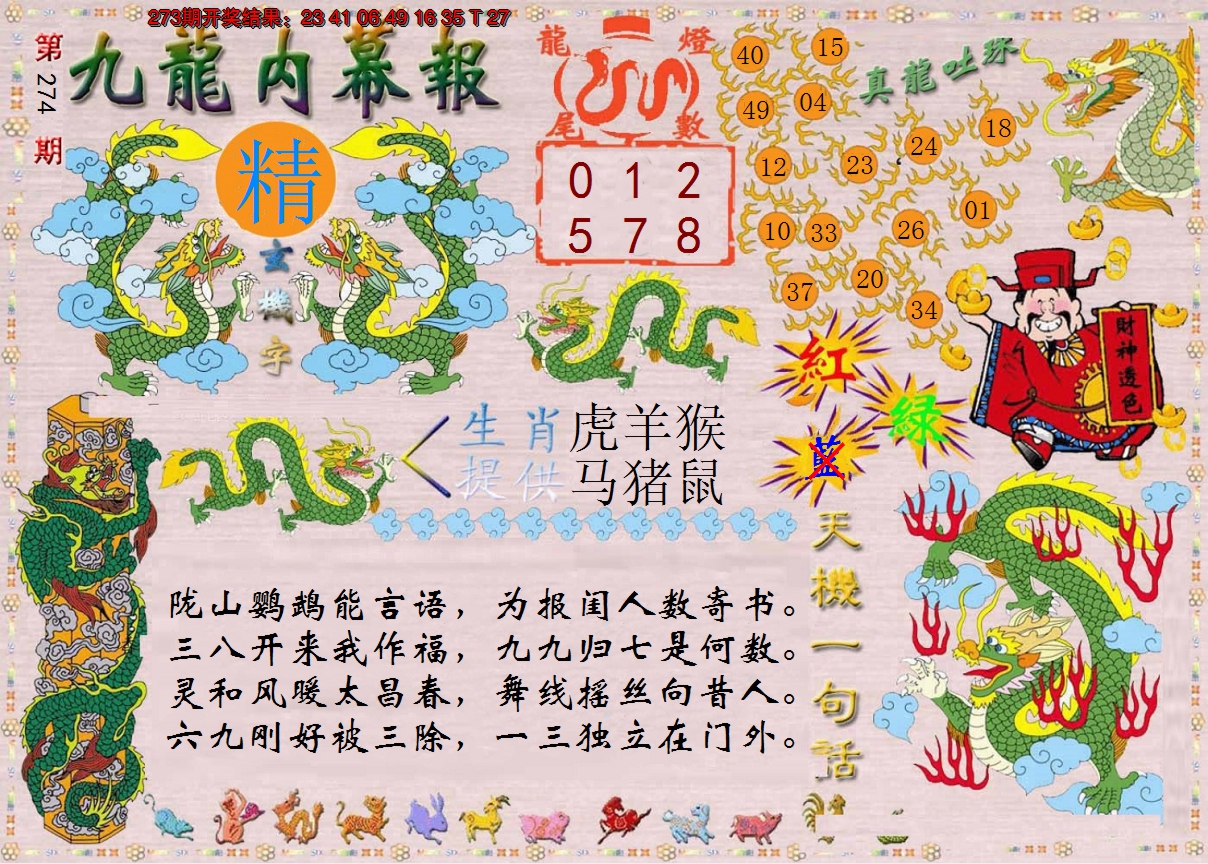 273期开奖结果：23 41 06 49 16 35 T 27
第274期
九龍内幕報
精
玄機字
龍燈
尾數
0 1 2
5 7 8
真龍吐珠
40 15
49 04
24 18
12 23
01
10 33 26
20
37 34
紅
綠
藍
財神透色
生肖 虎羊猴
提供 马猪鼠
天機一句話
陇山鹦鹉能言语，为报闺人数寄书。
三八开来我作福，九九归七是何数。
灵和风暖太昌春，舞线摇丝向昔人。
六九刚好被三除，一三独立在门外。